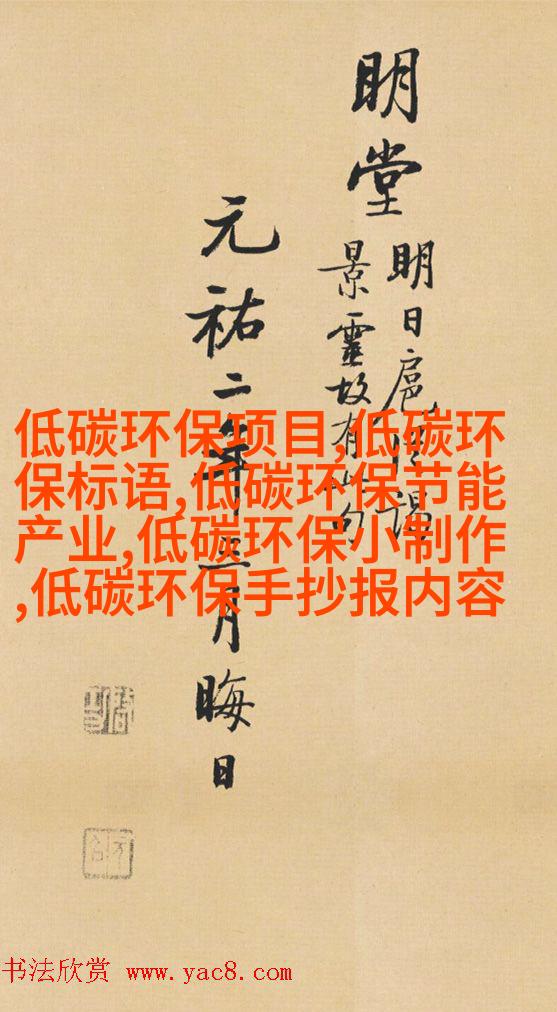 明堂
明日扈從謁
景靈故有此句
元祐二年三月晦日
低碳环保项目,低碳环
保标语,低碳环保节能
产业,低碳环保小制作
,低碳环保手抄报内容
书法欣赏 www.yac8.com